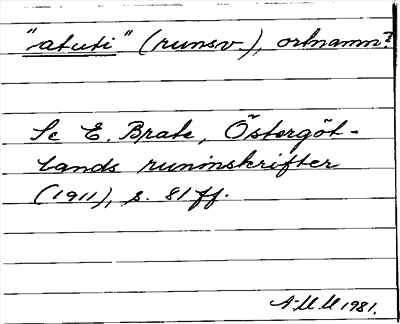 "atuti" (runsv.), ortnamn?
Se E. Brate, Östergöt-
lands runinskrifter
(1911), s. 81 ff.
A-M M 1981.